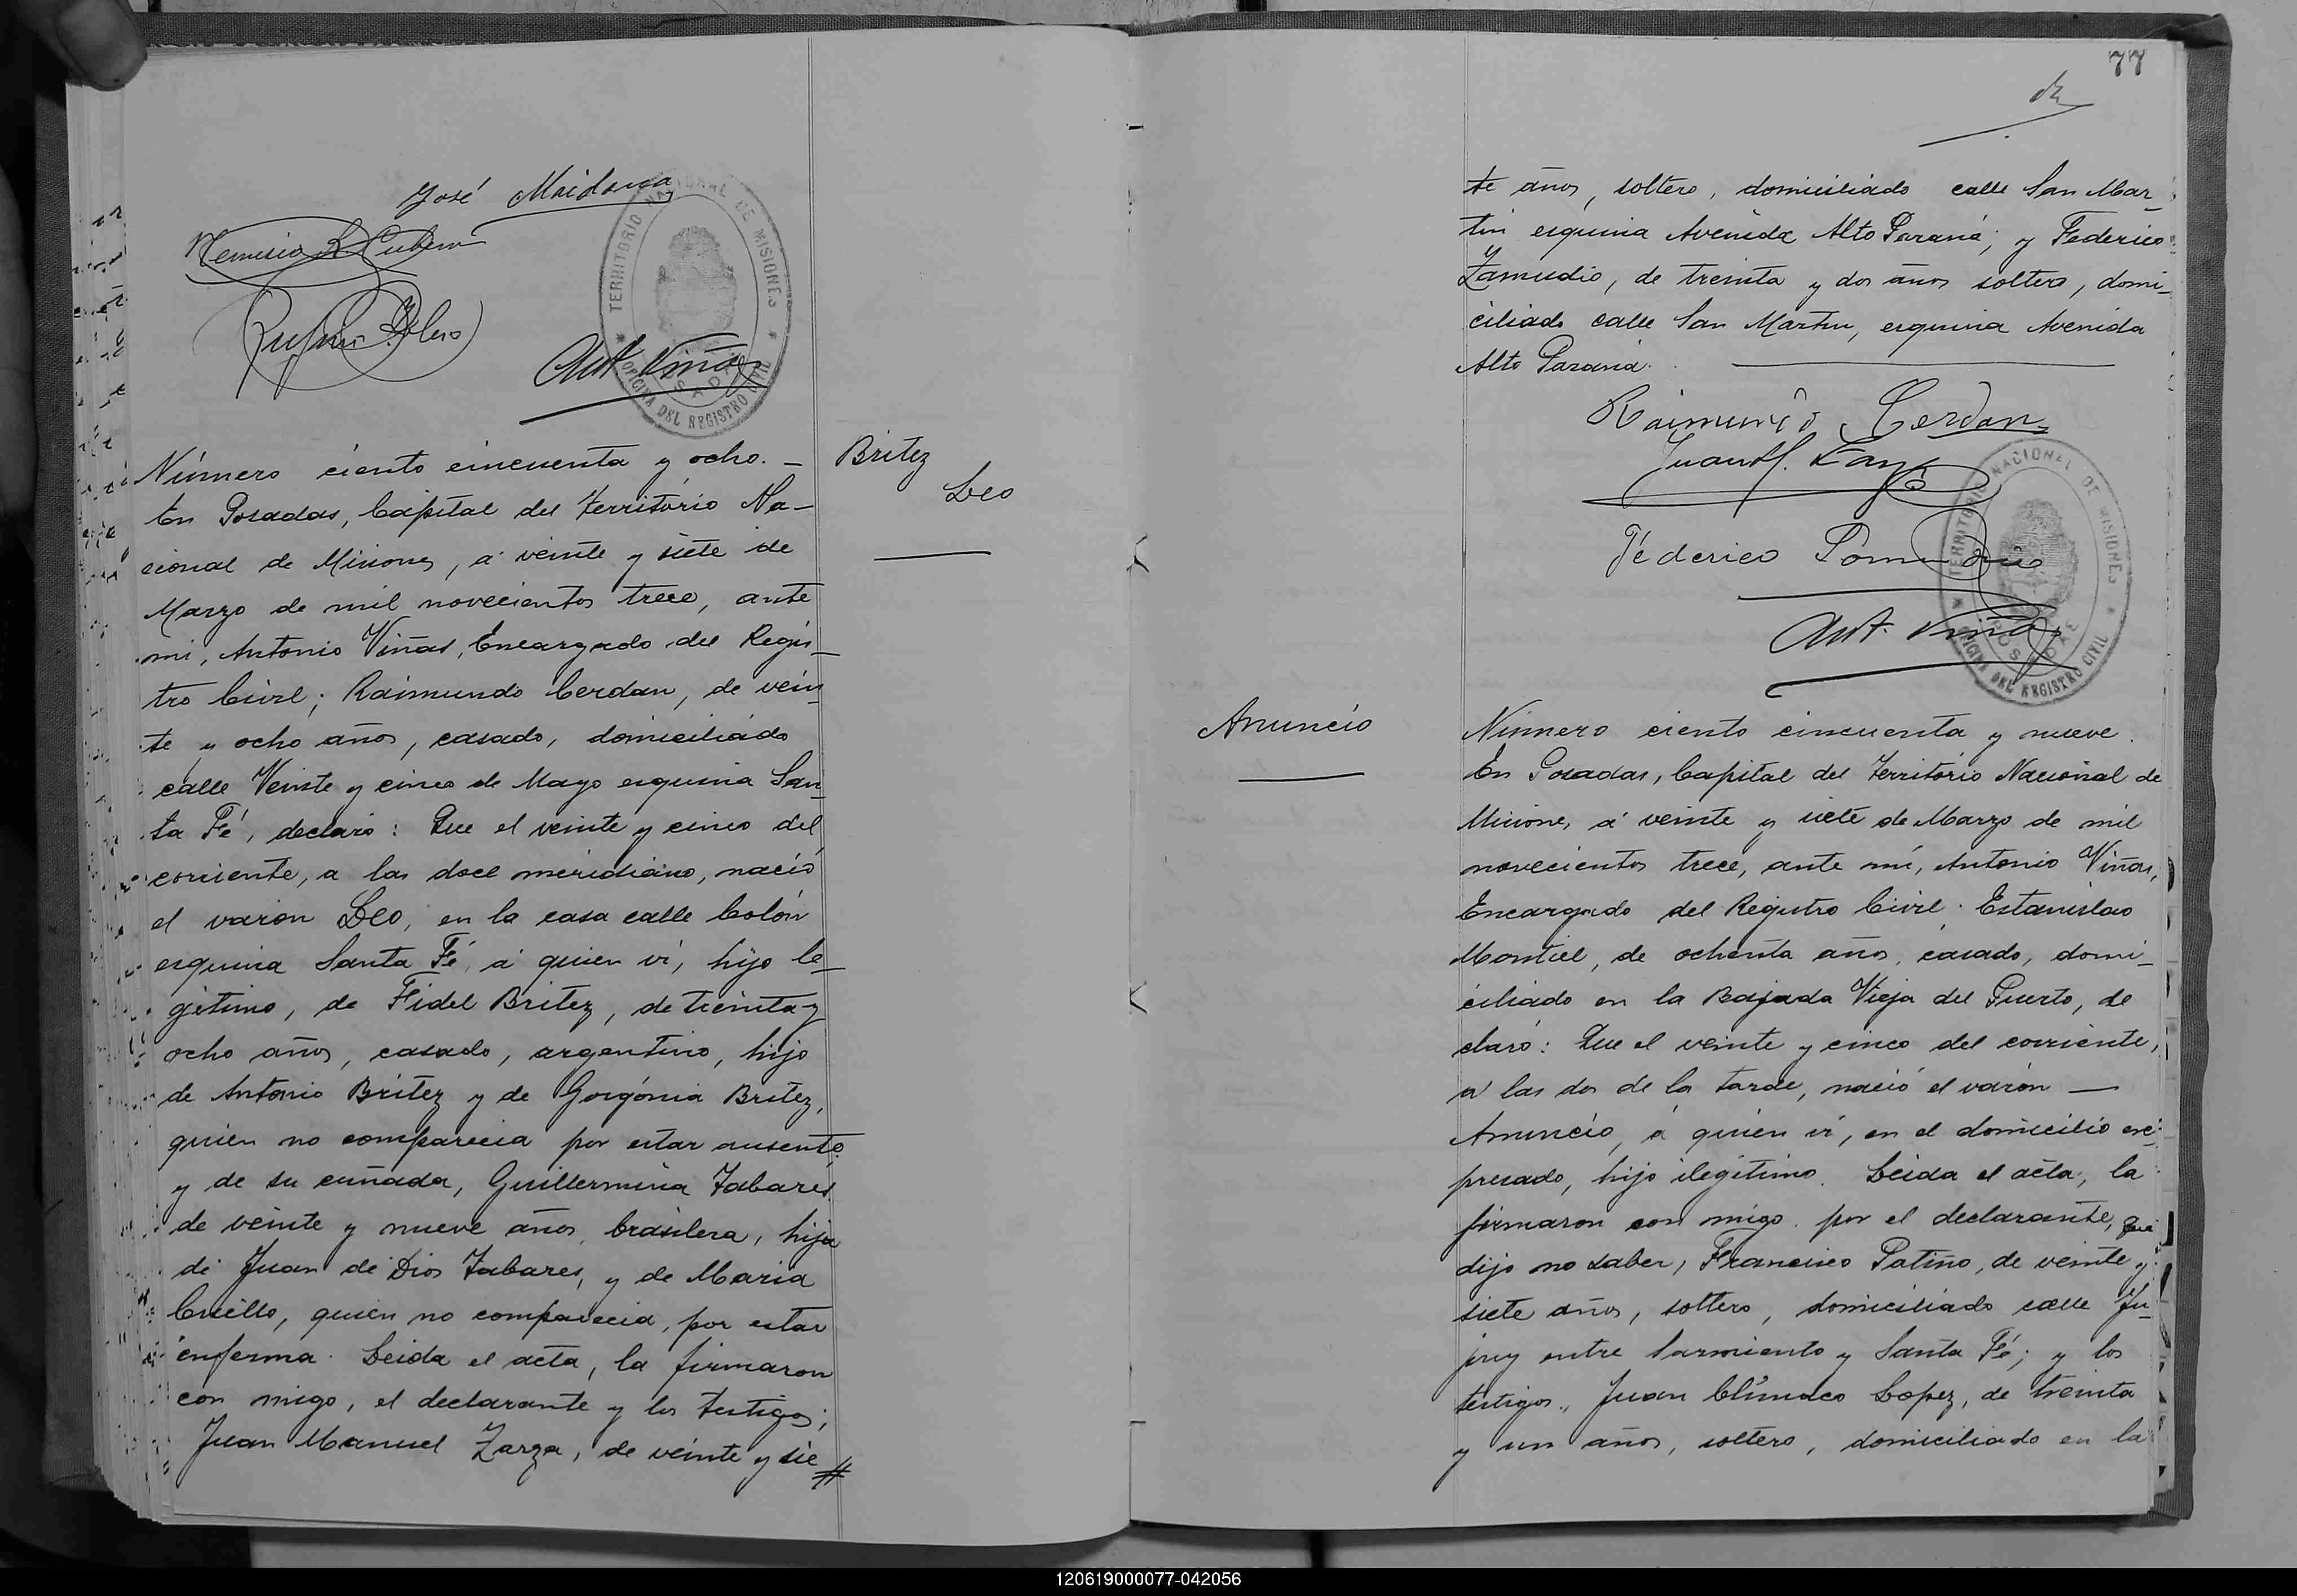 José Maidana
TERRITORIO NACIONAL DE MISIONES
OFICINA DEL REGISTRO CIVIL
Ant. Viñas
Número ciento cincuenta y ocho. —
En Posadas, Capital del Territorio Na—
cional de Misiones, á veinte y siete de
Marzo de mil novecientos trece, ante
mi, Antonio Viñas, Encargado del Regis—
tro Civil; Raimundo Cerdan, de vein—
te y ocho años, casado, domiciliado
calle Veinte y cinco de Mayo esquina San—
ta Fé, declaró: Que el veinte y cinco del
corriente, a las doce meridiano, nació
el varon Leo, en la casa calle Colón
esquina Santa Fé, á quien ví, hijo le—
gítimo, de Fidel Britez, de treinta y
ocho años, casado, argentino, hijo
de Antonio Britez y de Gorgónia Britez,
quien no comparecia por estar ausente
y de su cuñada, Guillermina Tabares
de veinte y nueve años, brasilera, hija
de Juan de Dios Tabares, y de Maria
Coello, quien no comparecia, por estar
enferma. Leida el acta, la firmaron
con migo, el declarante y los testigos;
Juan Manuel Zarza, de veinte y sie
Britez
Leo
77
te años, soltero, domiciliado calle San Mar—
tin esquina Avenida Alto Paraná; y Federico
Zamudio, de treinta y dos años soltero, domi—
ciliado calle San Martin, esquina Avenida
Alto Paraná.
Raimundo Cerdan
Juan M. Zarza
Federico
TERRITORIO NACIONAL DE MISIONES
POSADAS
OFICINA DEL REGISTRO CIVIL
Ant. Viñas
Anuncio
Número ciento cincuenta y nueve.
En Posadas, Capital del Territorio Nacional de
Misiones, á veinte y siete de Marzo de mil
novecientos trece, ante mí, Antonio Viñas,
Encargado del Registro Civil. Estanislao
Montiel, de ochenta años, casado, domi—
ciliado en la Bajada Vieja del Puerto, de
claró: Que el veinte y cinco del corriente,
a las dos de la tarde, nació el varón —
Anuncio, á quien ví, en el domicilio ex-
presado, hijo ilegítimo. Leida el acta, la
firmaron con migo. por el declarante, que
dijo no saber, Francisco Patiño, de veinte y
siete años, soltero, domiciliado calle Ju—
juy entre Sarmiento y Santa Fé; y los
testigos., Juan Clímaco Lopez, de treinta
y un años, soltero, domiciliado en la
120619000077-042056